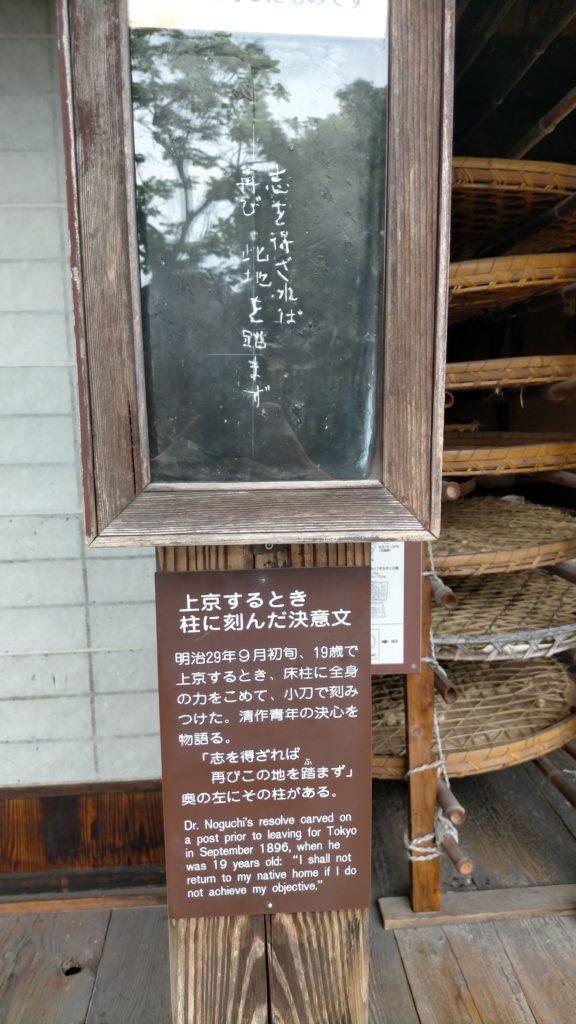 志を得ざれば
再び 此地を踏まず
上京するとき
柱に刻んだ決意文
明治29年9月初旬、19歳で
上京するとき、床柱に全身
の力をこめて、小刀で刻み
つけた。清作青年の決心を
物語る。
「志を得ざれば
再びこの地を踏まず」
奥の左にその柱がある。
Dr. Noguchi's resolve carved on
a post prior to leaving for Tokyo
in September 1896, when he
was 19 years old: “I shall not
return to my native home if I do
not achieve my objective.”